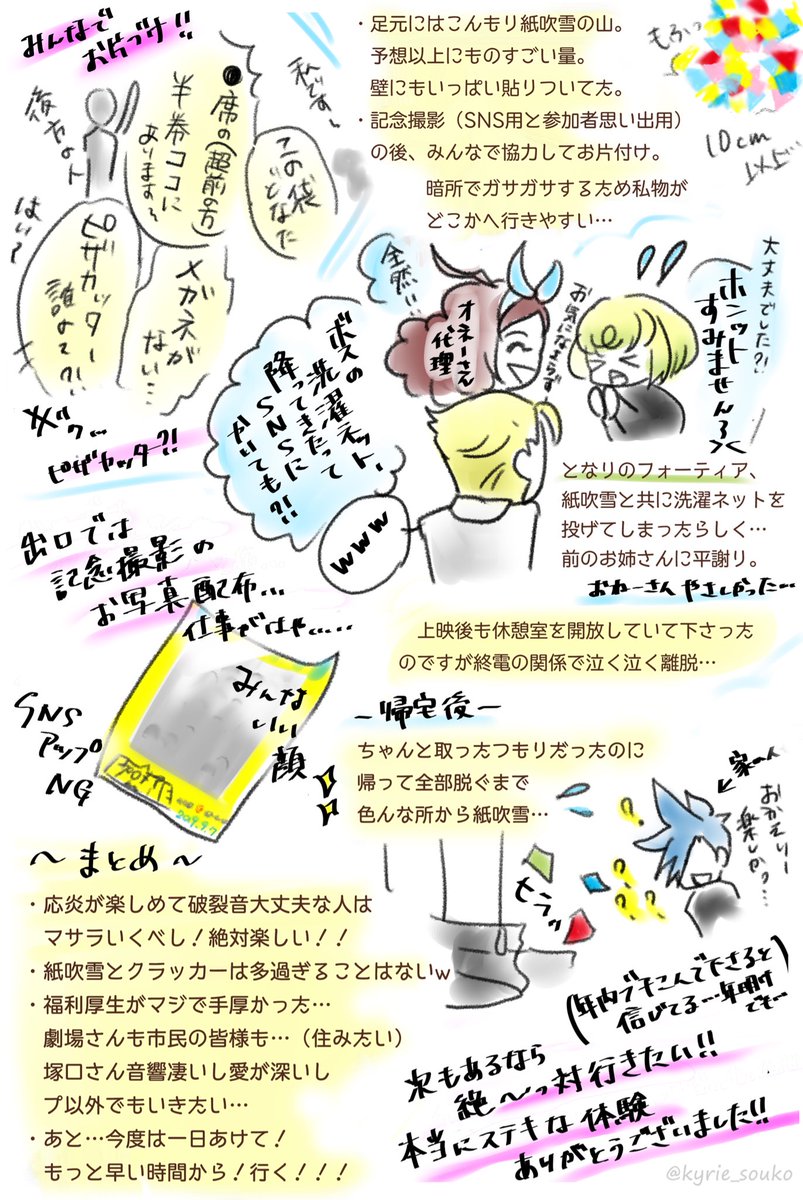 みんなで
お片づけ!!
・足元にはこんもり紙吹雪の山。
予想以上にものすごい量。
壁にもいっぱい貼りついてた。
・記念撮影（SNS用と参加者思い出用）
の後、みんなで協力してお片付け。
暗所でガサガサするため私物が
どこかへ行きやすい…
もふっ
10cm
以上…
私ですー
この袋
どなた
●席の(超前の方)
半券ココに
あります〜
後方より
メガネが
ない…
ピザカッター
誰よて?!
はい?
メガ…
ピザカッター?!
全然…
オネーさん
代理
お気になさらず
大丈夫でした?!
ホンット
すみませんろ
ボスの
洗濯ネット、
降ってきたって
SNSに
かいても?!
www
となりのフォーティア、
紙吹雪と共に洗濯ネットを
投げてしまったらしく…
前のお姉さんに平謝り。
おねーさん やさしかった…
出口では
記念撮影の
お写真配布…
仕事がはやい…
上映後も休憩室を開放していて下さった
のですが終電の関係で泣く泣く離脱…
みんな
いい
顔
2019.9.7
SNS
アップ
NG
ー帰宅後ー
ちゃんと取ったつもりだったのに
帰って全部脱ぐまで
色んな所から紙吹雪…
家の人
おかえりー
楽しか?…
ヒラッ
〜まとめ〜
・応炎が楽しめて破裂音大丈夫な人は
マサラいくべし！絶対楽しい！！
・紙吹雪とクラッカーは多過ぎることはないw
・福利厚生がマジで手厚かった…
劇場さんも市民の皆様も…（住みたい）
塚口さん音響凄いし愛が深いし
プ以外でもいきたい…
・あと…今度は一日あけて！
もっと早い時間から！行く！！！
(年内ブキこんで下さると
信じてる…年明け
でも…)
次もあるなら
絶〜っ対行きたい!!
本当にステキな体験
ありがとうございました!!
@kyrie_souko